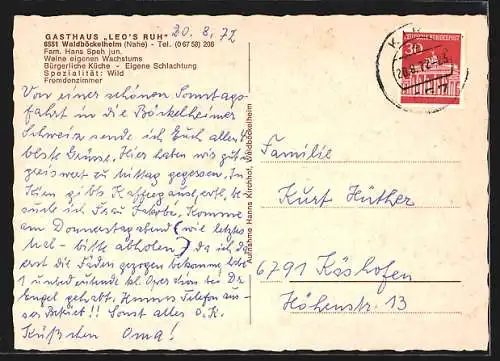 GASTHAUS „LEO'S RUH"
6551 Waldböckelheim (Nahe) - Tel. (0 67 58) 208
Fam. Hans Speh jun.
Weine eigenen Wachstums
Bürgerliche Küche - Eigene Schlachtung
Spezialität: Wild
Fremdenzimmer
20. 8. 72
Von einer schönen Sonntags-
fahrt in die Böckelheimer
Schweiz sende ich Euch allen
beste Grüsse. Hier haben wir gut
preiswert zu Mittag gegessen. In
Kirn gibts Kaffee
suche ich Frau Komme
am Donnerstagabend (wie letztes
Mal - bitte abholen) Da ich da
erst die Fäden gezogen bekomme, habe
1 unbedeutende kl. Operation bei Dr.
Engel gehabt. Hanns Telefon aus-
ser Betrieb!! Sonst alles O.K.
Küßchen Oma!
Aufnahme Hanns Kirchhof, Waldböckelheim
30
DEUTSCHE BUNDESPOST
20.8.72
Familie
Kurt Hüther
6791 Käshofen
Höhenstr. 13